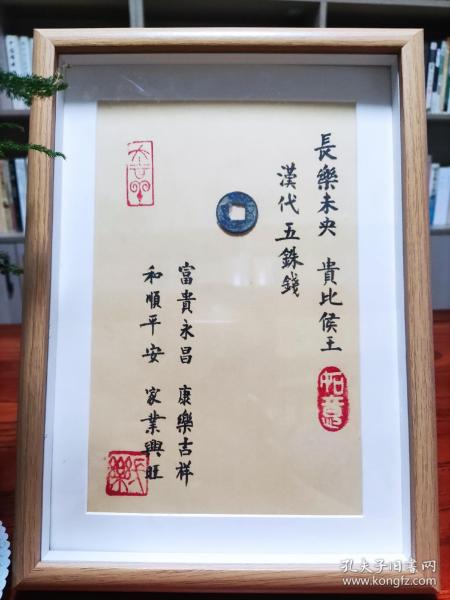 長樂未央 貴比侯王
漢代五銖錢
富貴永昌 康樂吉祥
和順平安 家業興旺
如意
長樂
孔夫子旧书网
www.kongfz.com